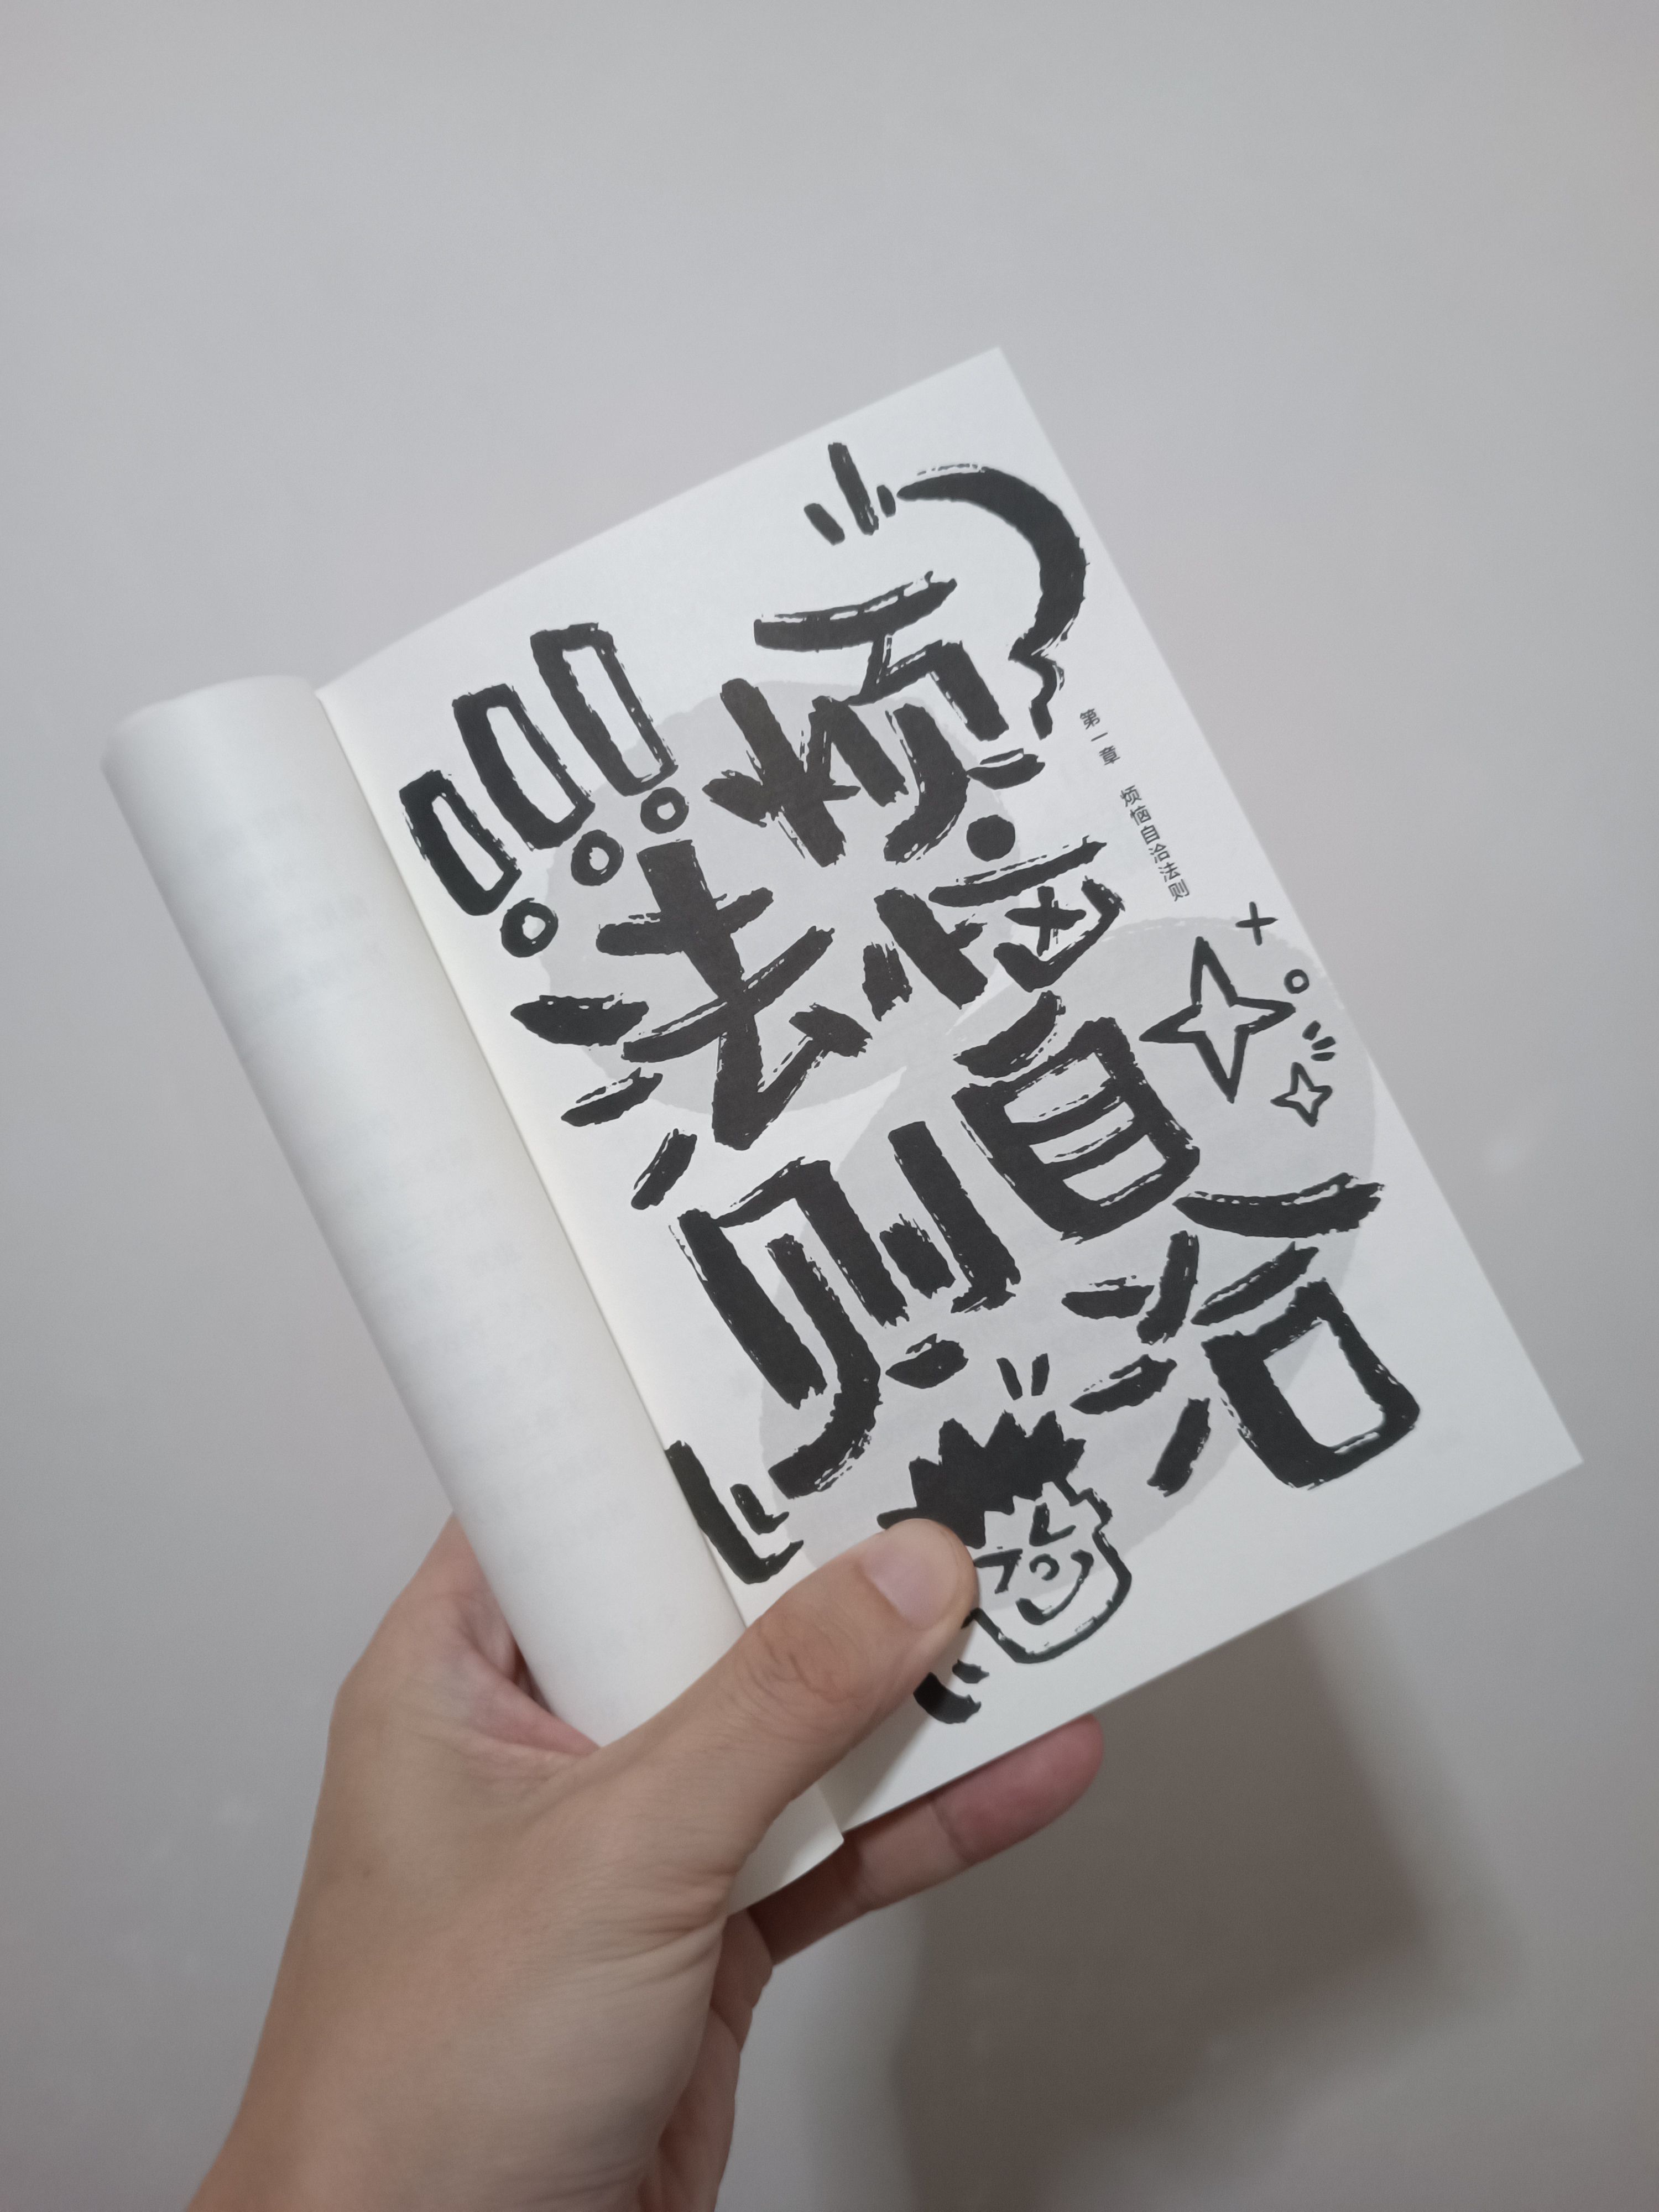 第一章 烦恼自洽法则
烦恼自洽
法则!!!